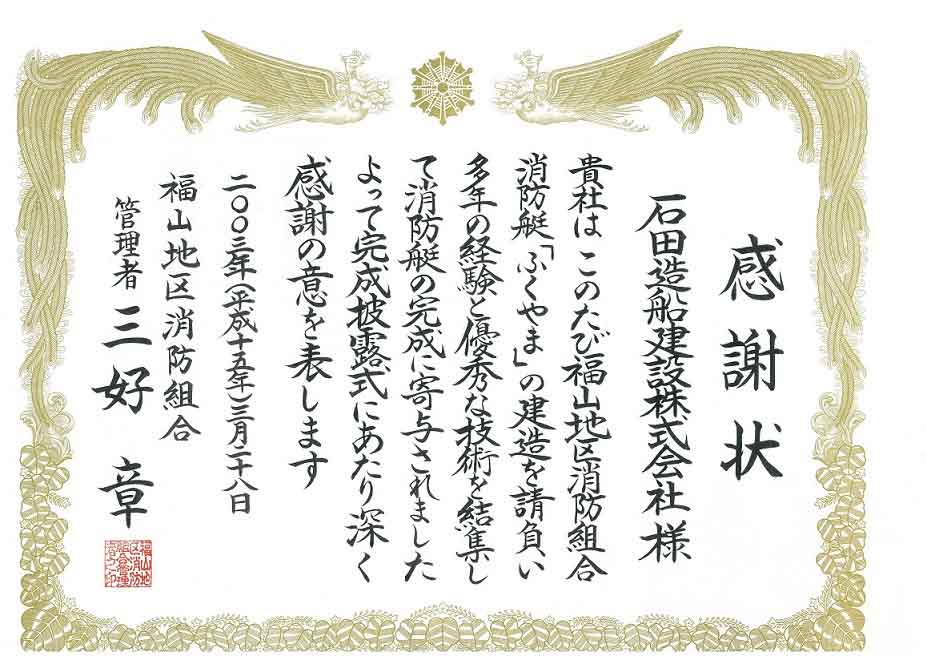 感謝状
石田造船建設株式会社様
貴社は このたび福山地区消防組合
消防艇「ふくやま」の建造を請負い
多年の経験と優秀な技術を結集し
て消防艇の完成に寄与されました
よって完成披露式にあたり深く
感謝の意を表します
二〇〇三年(平成十五年)三月二十八日
福山地区消防組合
管理者 三好 章